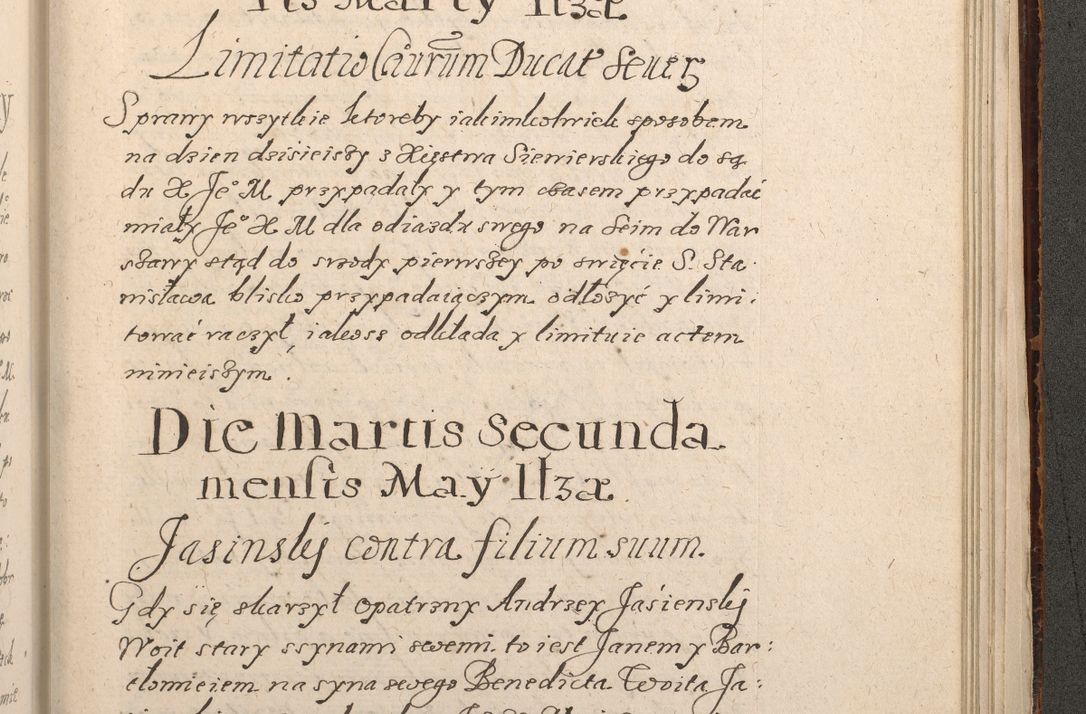 Limitatio Caurum Ducat Seuer
Sprawy wszytkie ktoreby iakimkolwiek sposobem
na dzien dzisieiszy z Xięstwa Siewierskiego do są
du X Je° M przypadały y tym czasem przypadać
miały Je° X M dla odiazdu swego na Seim do War
szawy ztąd do srzody pierwszey po swięcie S. Sta
nisława blisko przypadaiączym odłozyć y limi:
tować raczył, iakosz odkłada y limituie actem
ninieiszym.
Die Martis Secunda
mensis May Itza
Jasinskj contra filium suum.
Gdy się skarzył opatrzny Andrzey Jásienskj
Woit stary zsynami swemi to iest Janem y Bar:
tłomieiem na syna swego Benedicta Woita Ja: